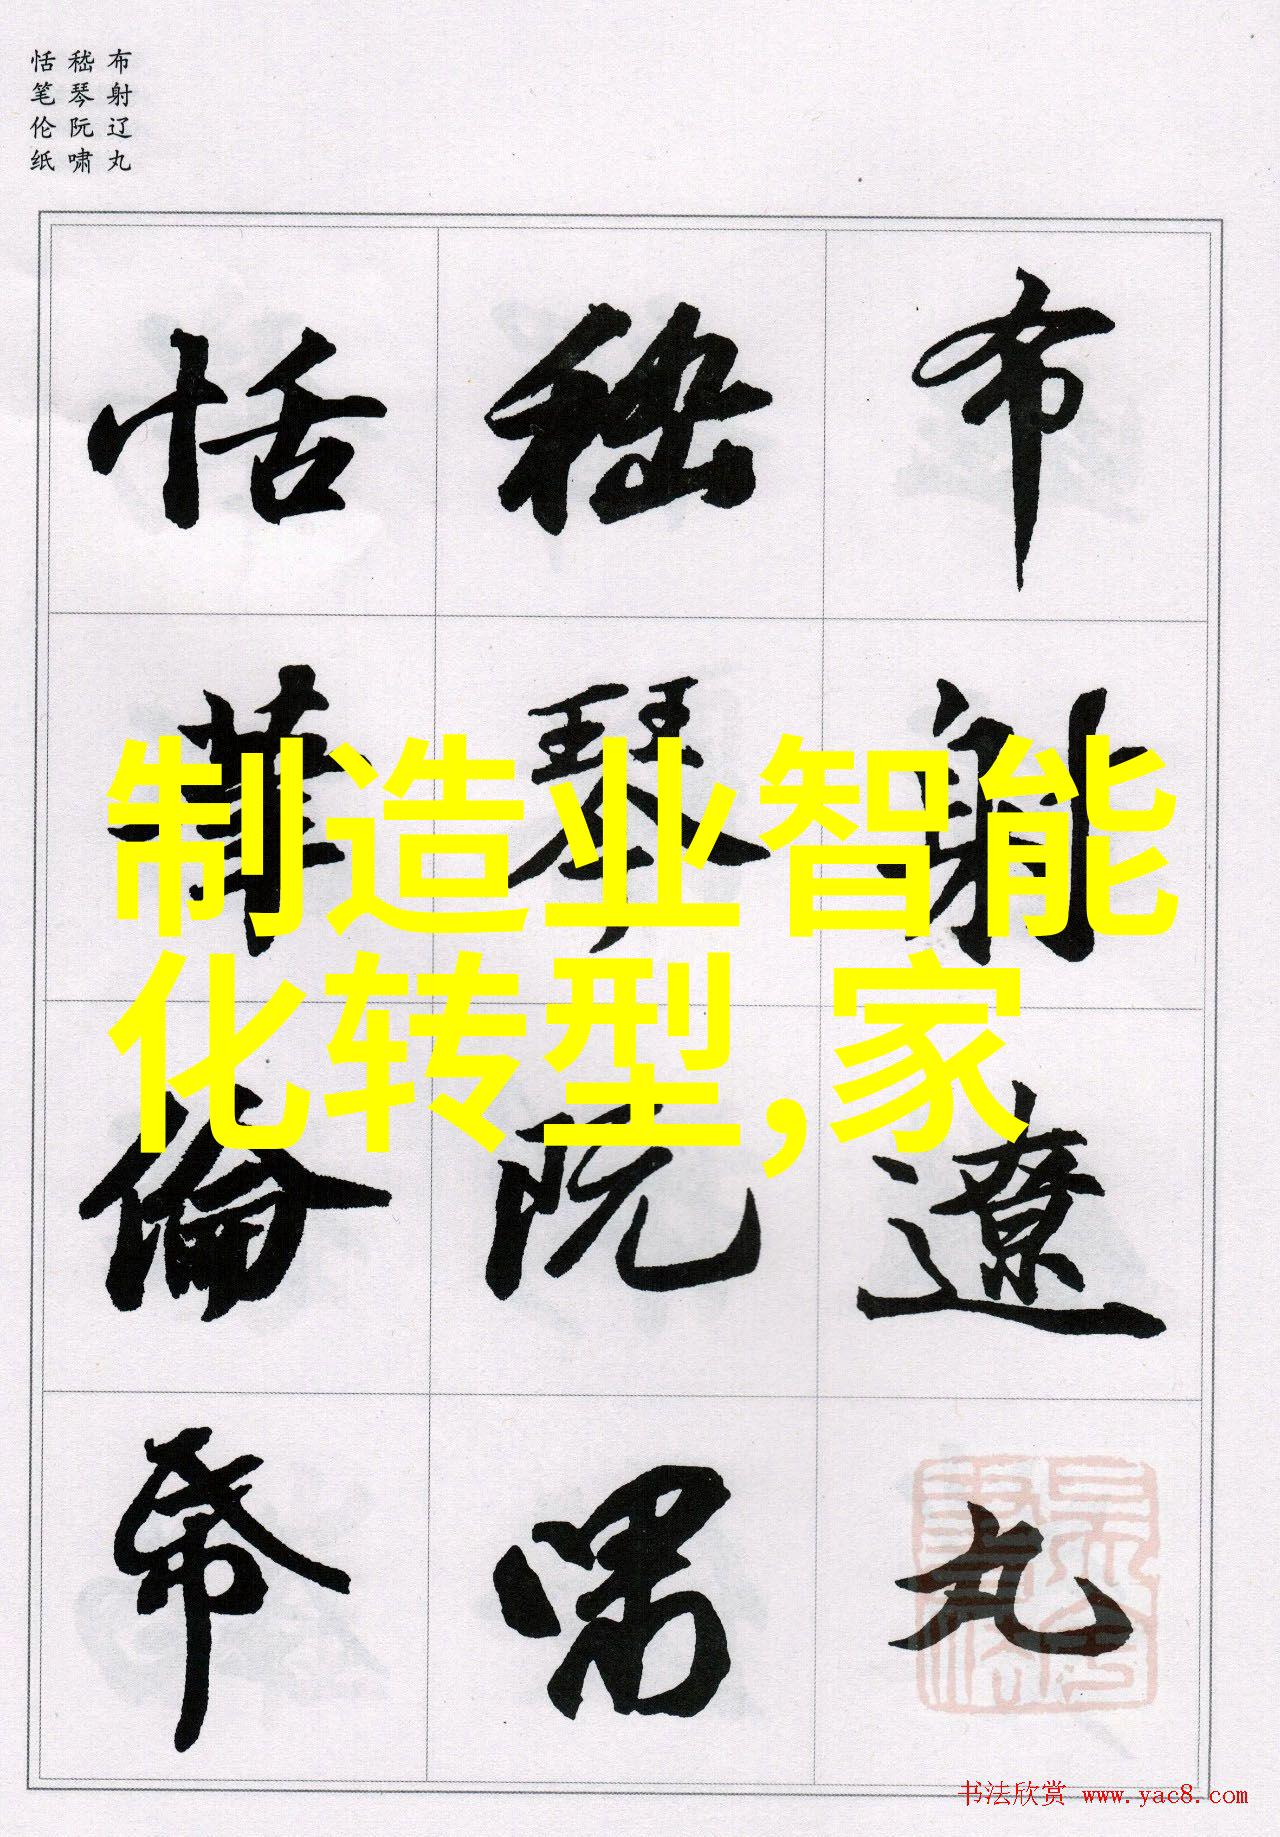 布射辽丸
嵇琴阮啸
恬笔伦纸
布射遼丸
嵇琴阮嘯
恬筆倫帋
制造业智能
化转型,家
书法欣赏 www.yac8.com